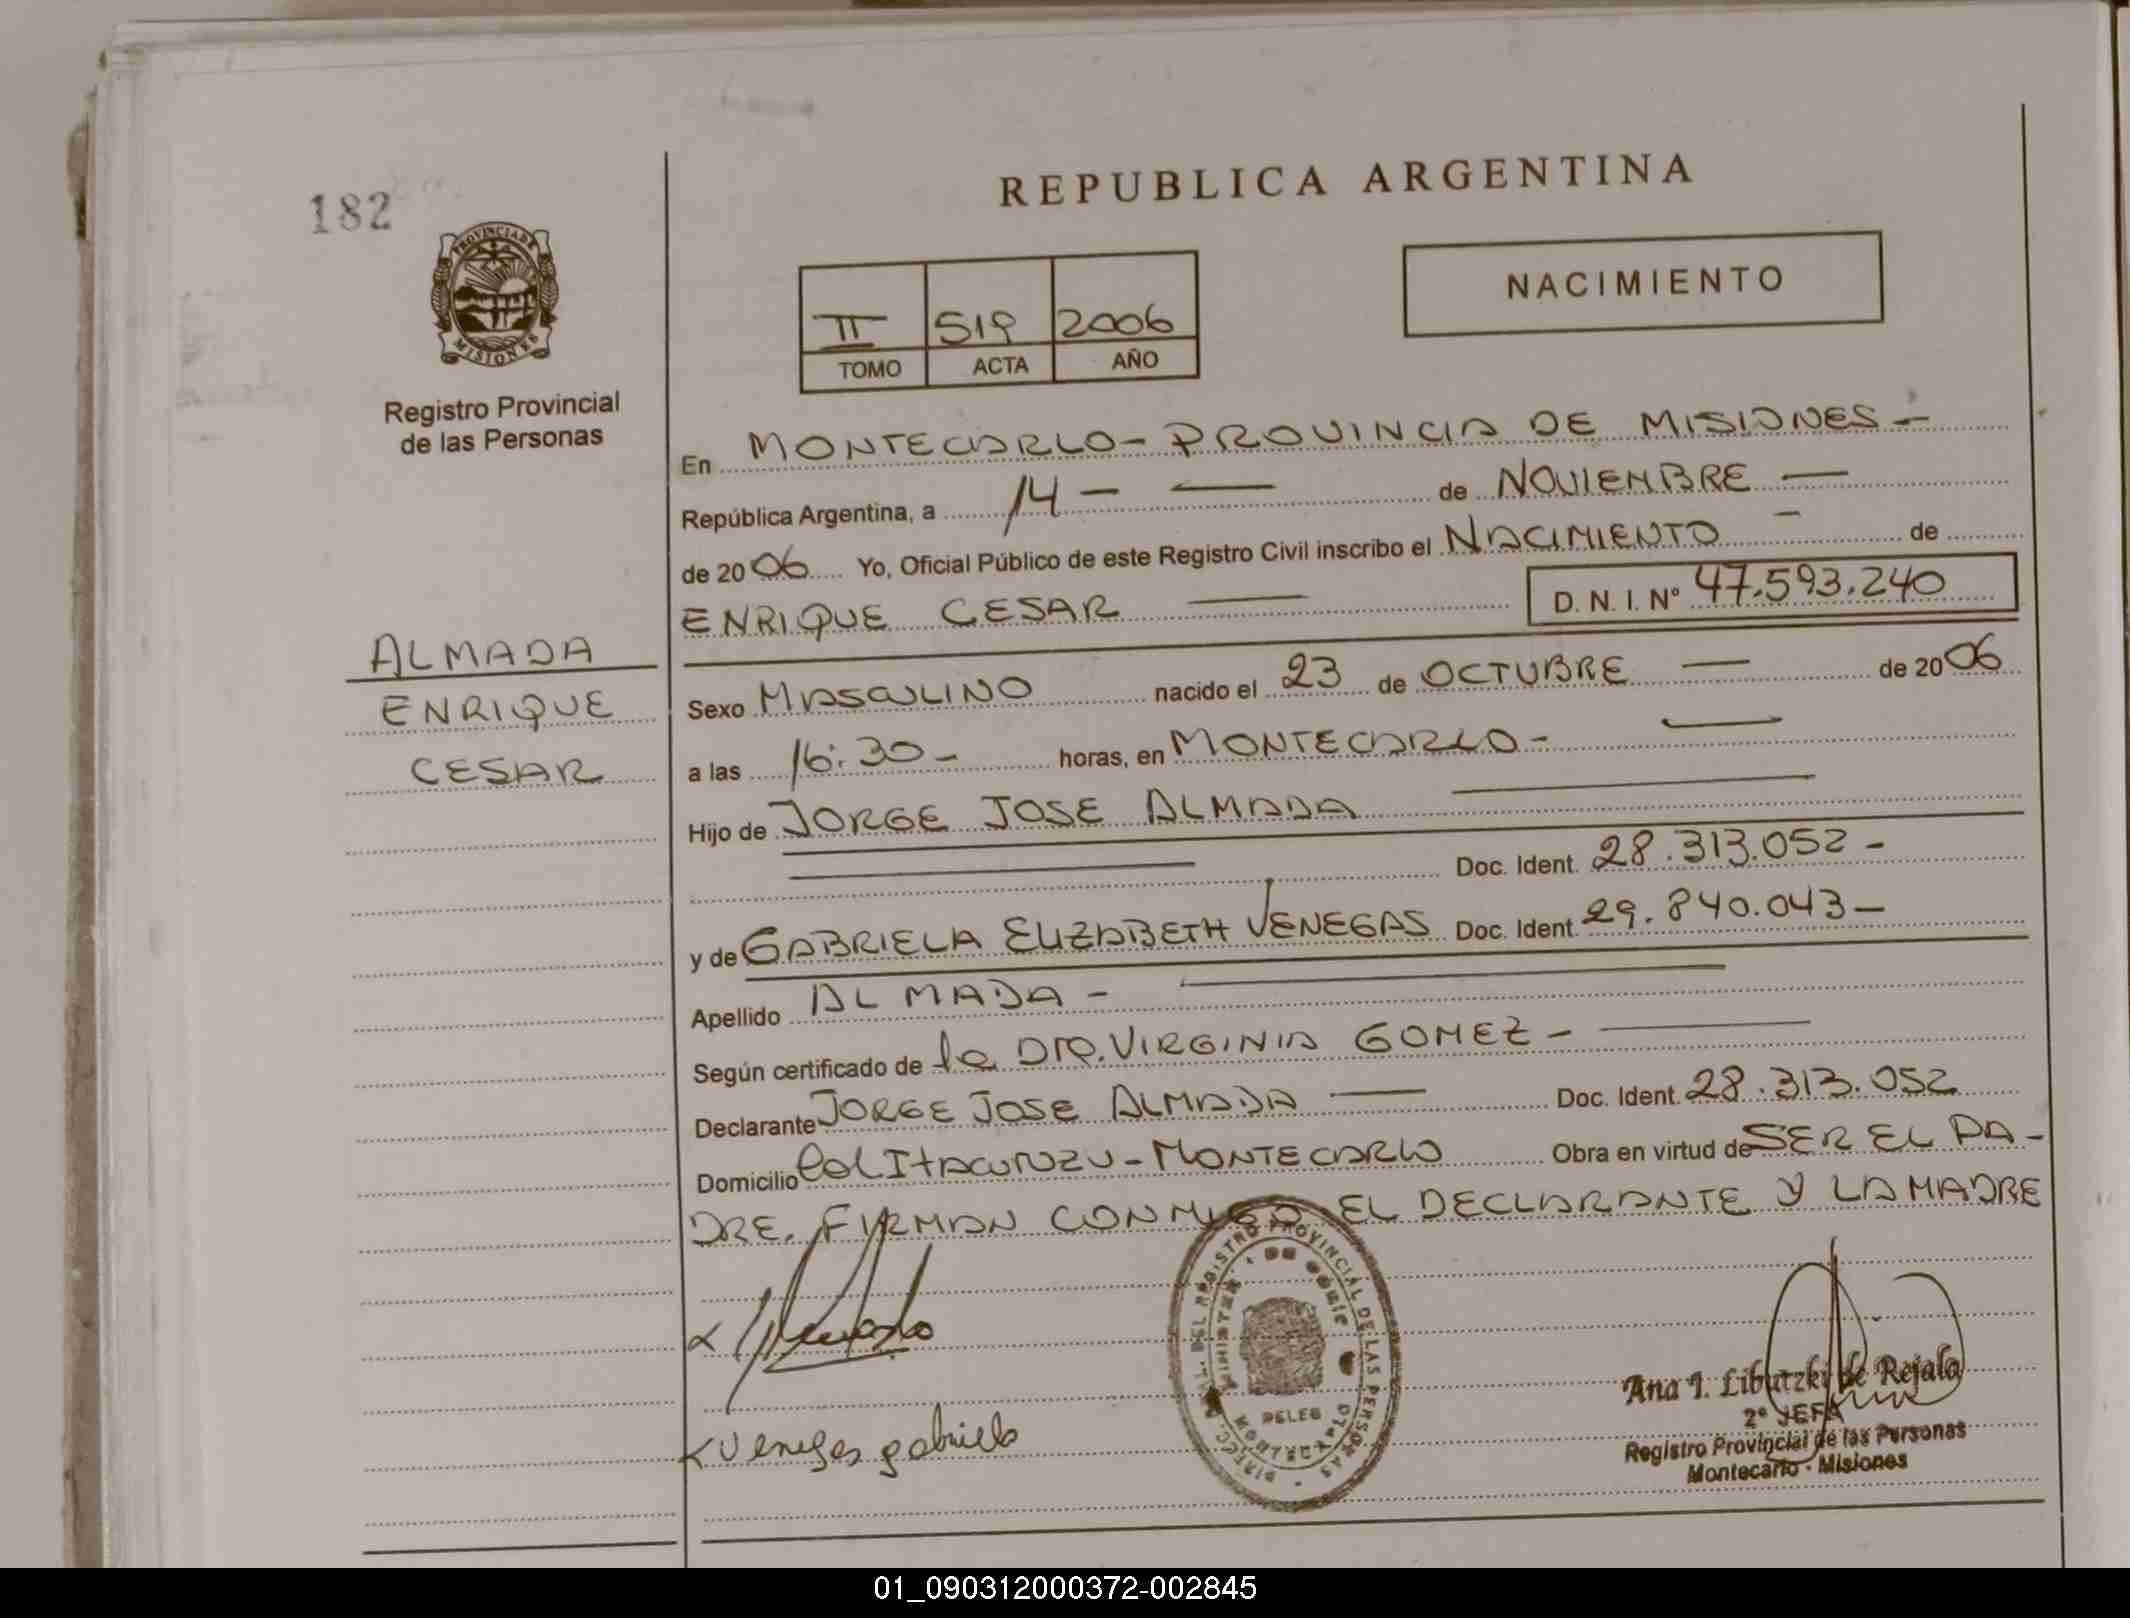 182
PROVINCIA DE
MISIONES
Registro Provincial
de las Personas
ALMADA
ENRIQUE
CESAR
REPUBLICA ARGENTINA
II 519 2006
TOMO ACTA AÑO
NACIMIENTO
En MONTECARLO - PROVINCIA DE MISIONES -
República Argentina, a 14 - — de NOVIEMBRE —
de 2006 Yo, Oficial Público de este Registro Civil inscribo el NACIMIENTO - de
ENRIQUE CESAR — D. N. I. Nº 47.593.240
Sexo MASCULINO nacido el 23 de OCTUBRE — de 2006
a las 16:30 - horas, en MONTECARLO - —
Hijo de JORGE JOSE ALMADA —
Doc. Ident. 28.313.052 -
y de GABRIELA ELIZABETH VENEGAS Doc. Ident. 29.840.043 -
Apellido ALMADA - —
Según certificado de la DRA. VIRGINIA GOMEZ - —
Declarante JORGE JOSE ALMADA — Doc. Ident. 28.313.052
Domicilio Col Itacuruzu - MONTECARLO Obra en virtud de SER EL PA-
DRE. FIRMAN CONMIGO EL DECLARANTE Y LA MADRE
Venegas gabriela
DEL REGISTRO PROVINCIAL DE LAS PERSONAS
Ana I. Libutzki de Rejala
2º JEFA
Registro Provincial de las Personas
Montecarlo - Misiones
01_090312000372-002845